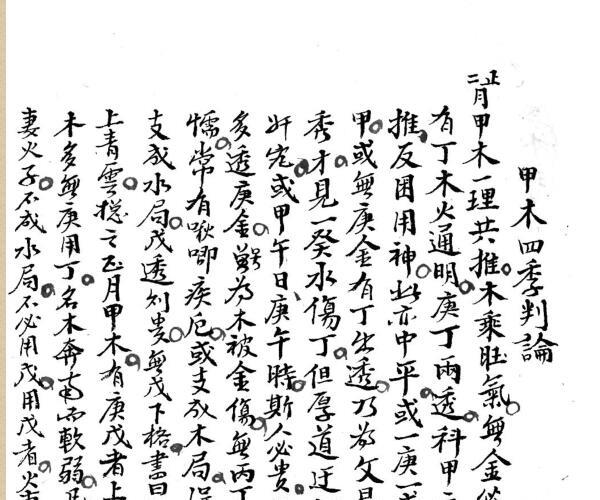 甲木四季判論
正二月甲木一理共推木乘旺氣無金必
有丁木火通明庚丁兩透科甲
推反困用神此亦中平或一庚一
甲或無庚金有丁出透乃為文
秀才見一癸水傷丁但厚道迂
奸宄或甲午日庚午時斯人必貴
多透庚金號為木被金傷無丙丁
懦常有啾唧疾厄或支成木局
支成水局戊透則貴無戊下格書曰
上青雲總之正月甲木有庚戊者上
木多無庚用丁名木奔南而軟弱
妻火子不成水局不必用戊用戊者火